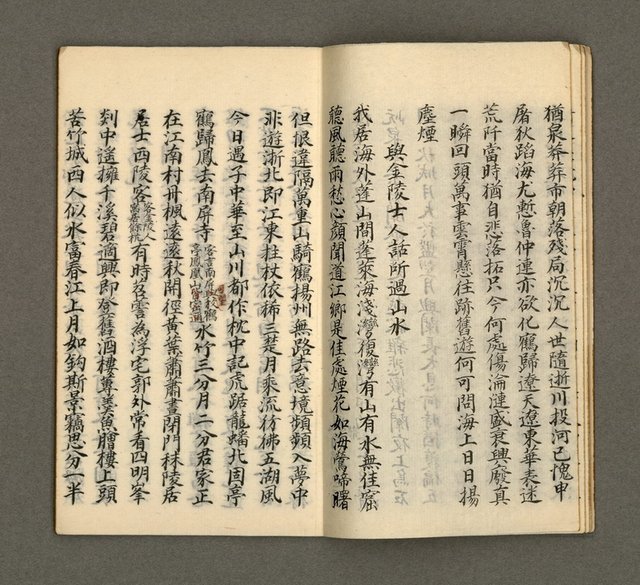 猶泉莽莽市朝落殘局沉沉人世隨逝川投河已愧申
屠狄蹈海尤慙魯仲連亦欲化鶴歸遼天遼東華表迷
荒阡當時猶自悲落拓只今何處傷淪漣盛衰興廢真
一瞬回頭萬事雲霄懸往跡舊遊何可問海上日日揚
塵煙
與金陵士人話所遇山水
我居海外蓬山間蓬萊海淺灣復灣有山有水無住窟
聽風聽雨愁心顏聞道江鄉是佳處煙花如海鶯啼曙
但恨違隔萬重山騎鶴揚州無路去意境頻頻入夢中
非遊浙北即江東拄杖依稀三楚月乘流彷彿五湖風
今日遇子中華至山川都作枕中記虎踞龍蟠北固亭
鶴歸鳳去南屏寺水竹三分月二分君家正
在江南村丹楓遠遠秋開徑黃葉蕭蕭晝閉門秣陵居
居士西陵客有時召雲為浮宅郭外常看四明峯
剡中遙擁千溪碧適興即登舊酒樓蓴羹魚膾樓上頭
苦竹城西人似水富春江上月如鈎斯景竊思分一半